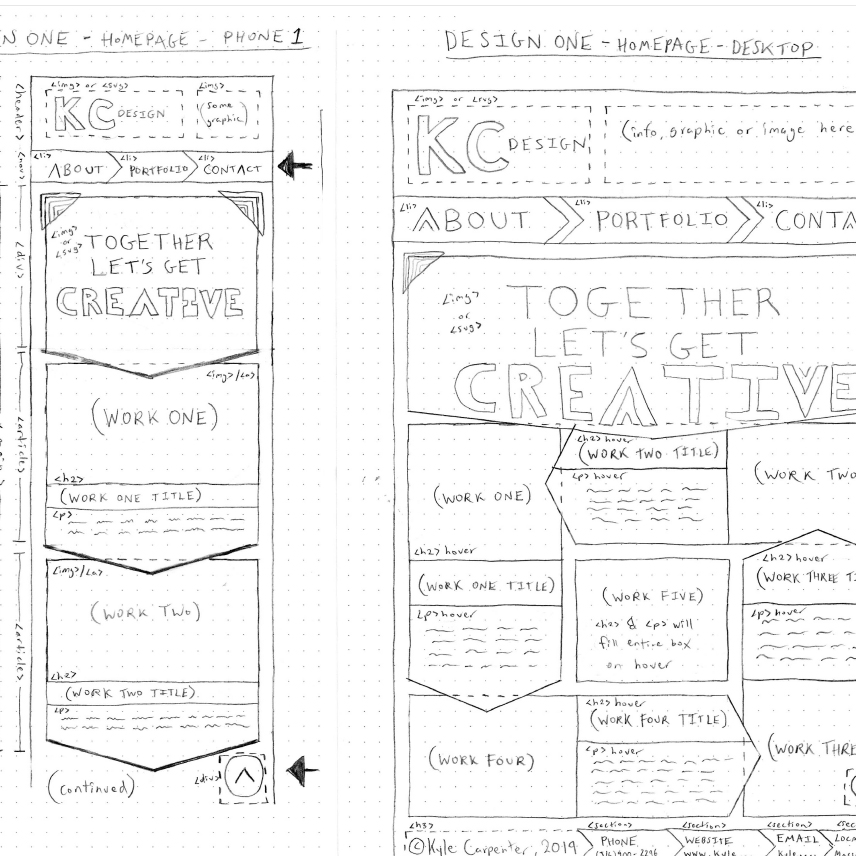 N ONE - HOMEPAGE - PHONE 1
<header>
<nav>
<div>
<article>
<article>
<img> or <svg>
<img>
KC DESIGN
(some graphic)
<li> ABOUT <li> PORTFOLIO <li> CONTACT
<img>
or
<svg>
TOGETHER
LET'S GET
CREATIVE
<img>/<a>
(WORK ONE)
<h2>
(WORK ONE TITLE)
<p>
<img>/<a>
(WORK TWO)
<h2>
(WORK TWO TITLE)
<p>
(continued)
<div>
DESIGN ONE - HOMEPAGE - DESKTOP
<img> or <svg>
KC DESIGN
(info, graphic or image here
<li> ABOUT <li> PORTFOLIO <li> CONTA
<img>
or
<svg>
TOGETHER
LET'S GET
CREATIVE
(WORK ONE)
<h2> hover
(WORK TWO TITLE)
<p> hover
(WORK TWO
<h2> hover
(WORK ONE TITLE)
<p> hover
(WORK FIVE)
<h2> & <p> will
fill entire box
on hover
<h2> hover
(WORK THREE TI
<p> hover
(WORK FOUR)
<h2> hover
(WORK FOUR TITLE)
<p> hover
(WORK THRE
<h3>
© Kyle Carpenter, 2019
<section>
PHONE
<section>
WEBSITE
www.Kyle
<section>
EMAIL
Kyle
<sec
LOC